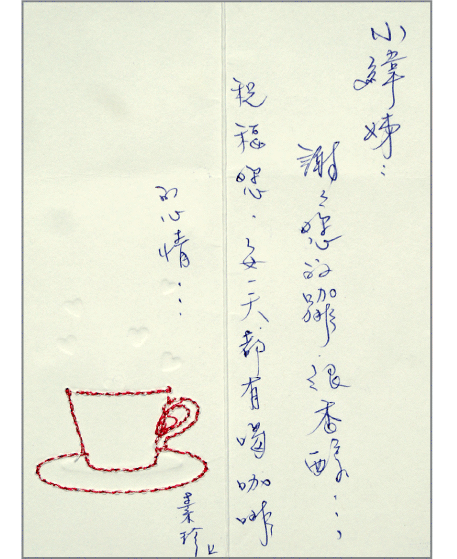 小嫜姊：
謝謝您的咖啡．很香醇…，
祝福您．每一天都有喝咖啡
的心情…
素珍上